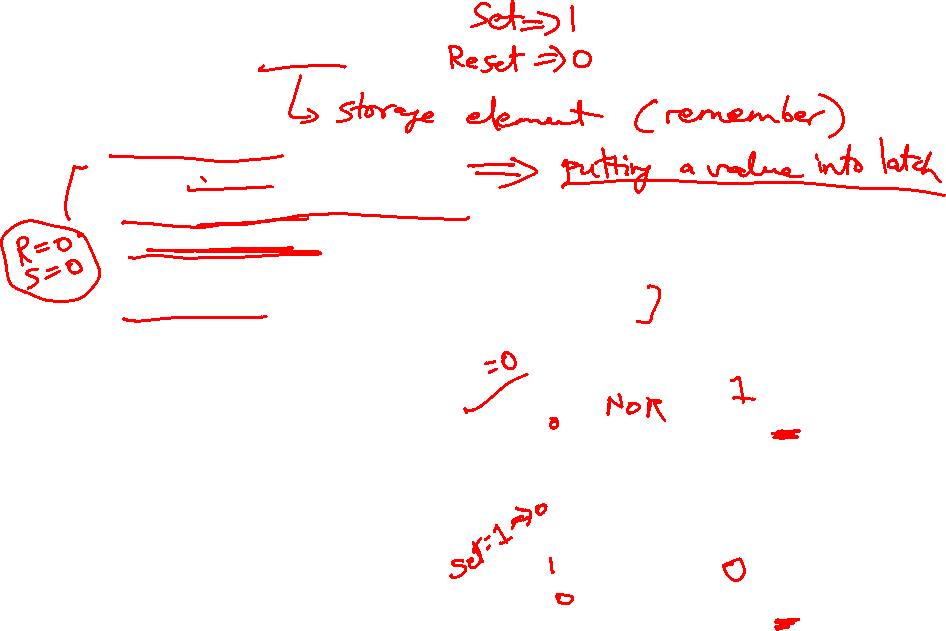 Set ⇒ 1
Reset ⇒ 0
↳ storage element (remember)
⇒ putting a value into latch
R=0
S=0
=0
NOR
1
0
set=1⇒0
1
0
0